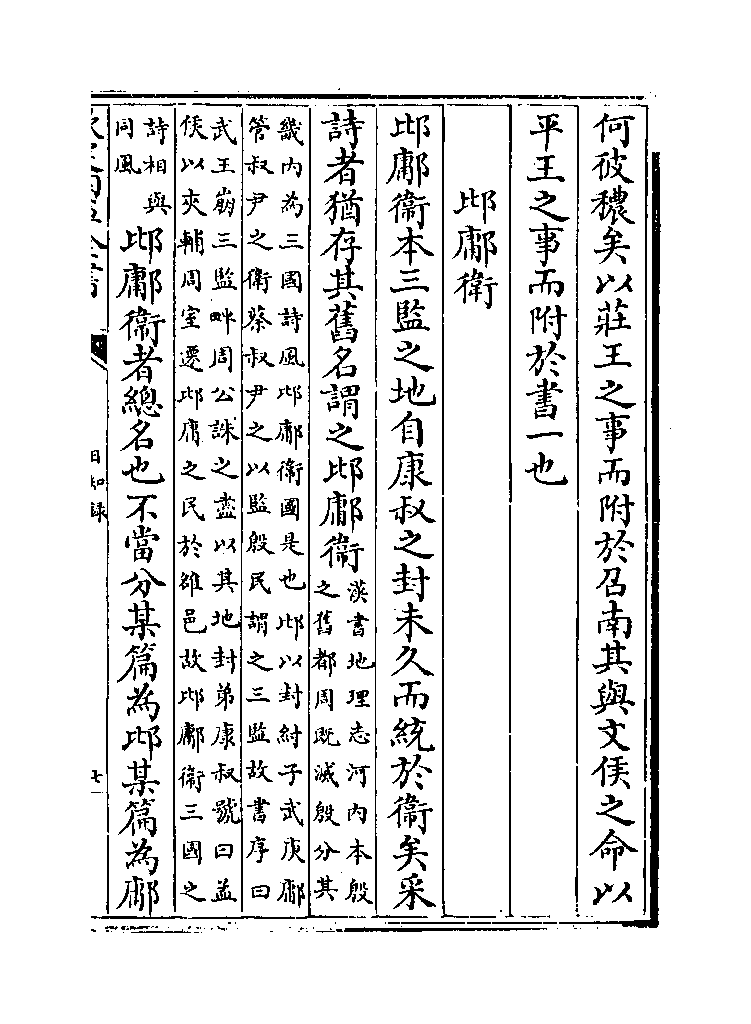 何彼穠矣以莊王之事而附於召南其與文侯之命以
平王之事而附於書一也
邶鄘衛
邶鄘衛本三監之地自康叔之封未久而統於衛矣采
詩者猶存其舊名謂之邶鄘衛
漢書地理志河内本殷
之舊都周既滅殷分其
畿内為三國詩風邶鄘衛國是也邶以封紂子武庚鄘
管叔尹之衛蔡叔尹之以監殷民謂之三監故書序曰
武王崩三監畔周公誅之盡以其地封弟康叔號曰孟
侯以夾輔周室遷邶庸之民於雒邑故邶鄘衛三國之
詩相與
同風
邶鄘衛者總名也不當分某篇為邶某篇為鄘
日知録
七